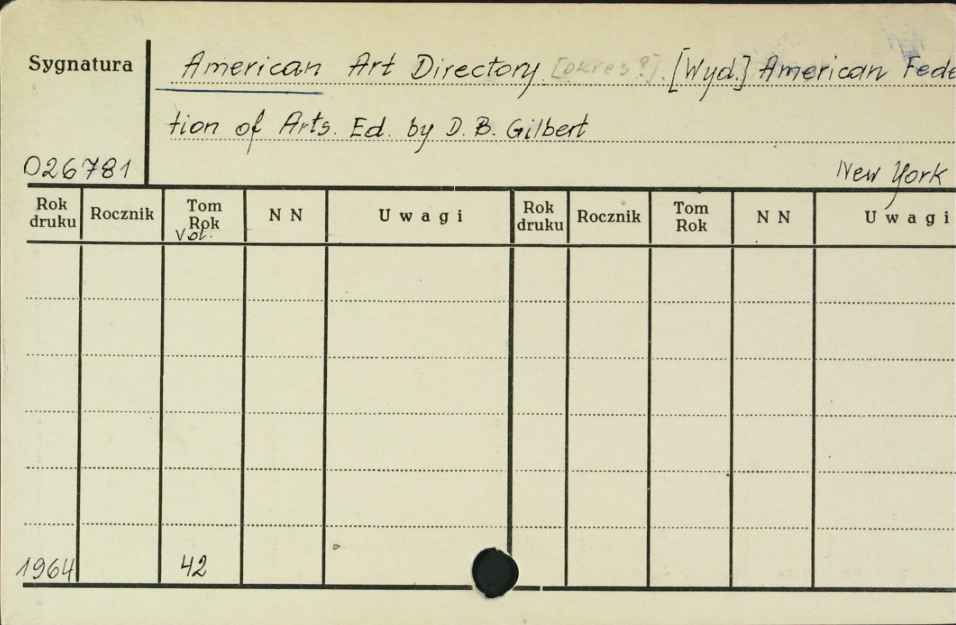 Sygnatura American Art Directory. [okres?]. [Wyd.] American Fede
tion of Arts. Ed. by D. B. Gilbert
026781 New York
Rok druku Rocznik Tom Rok Vol. N N Uwagi Rok druku Rocznik Tom Rok N N Uwagi
1964 42